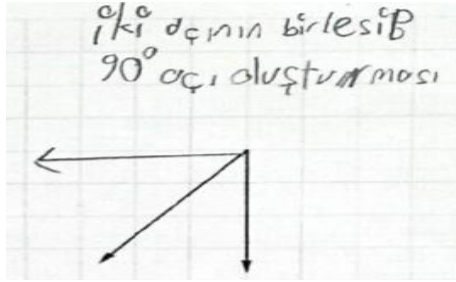 iki açının birlesip
90° açı oluşturması